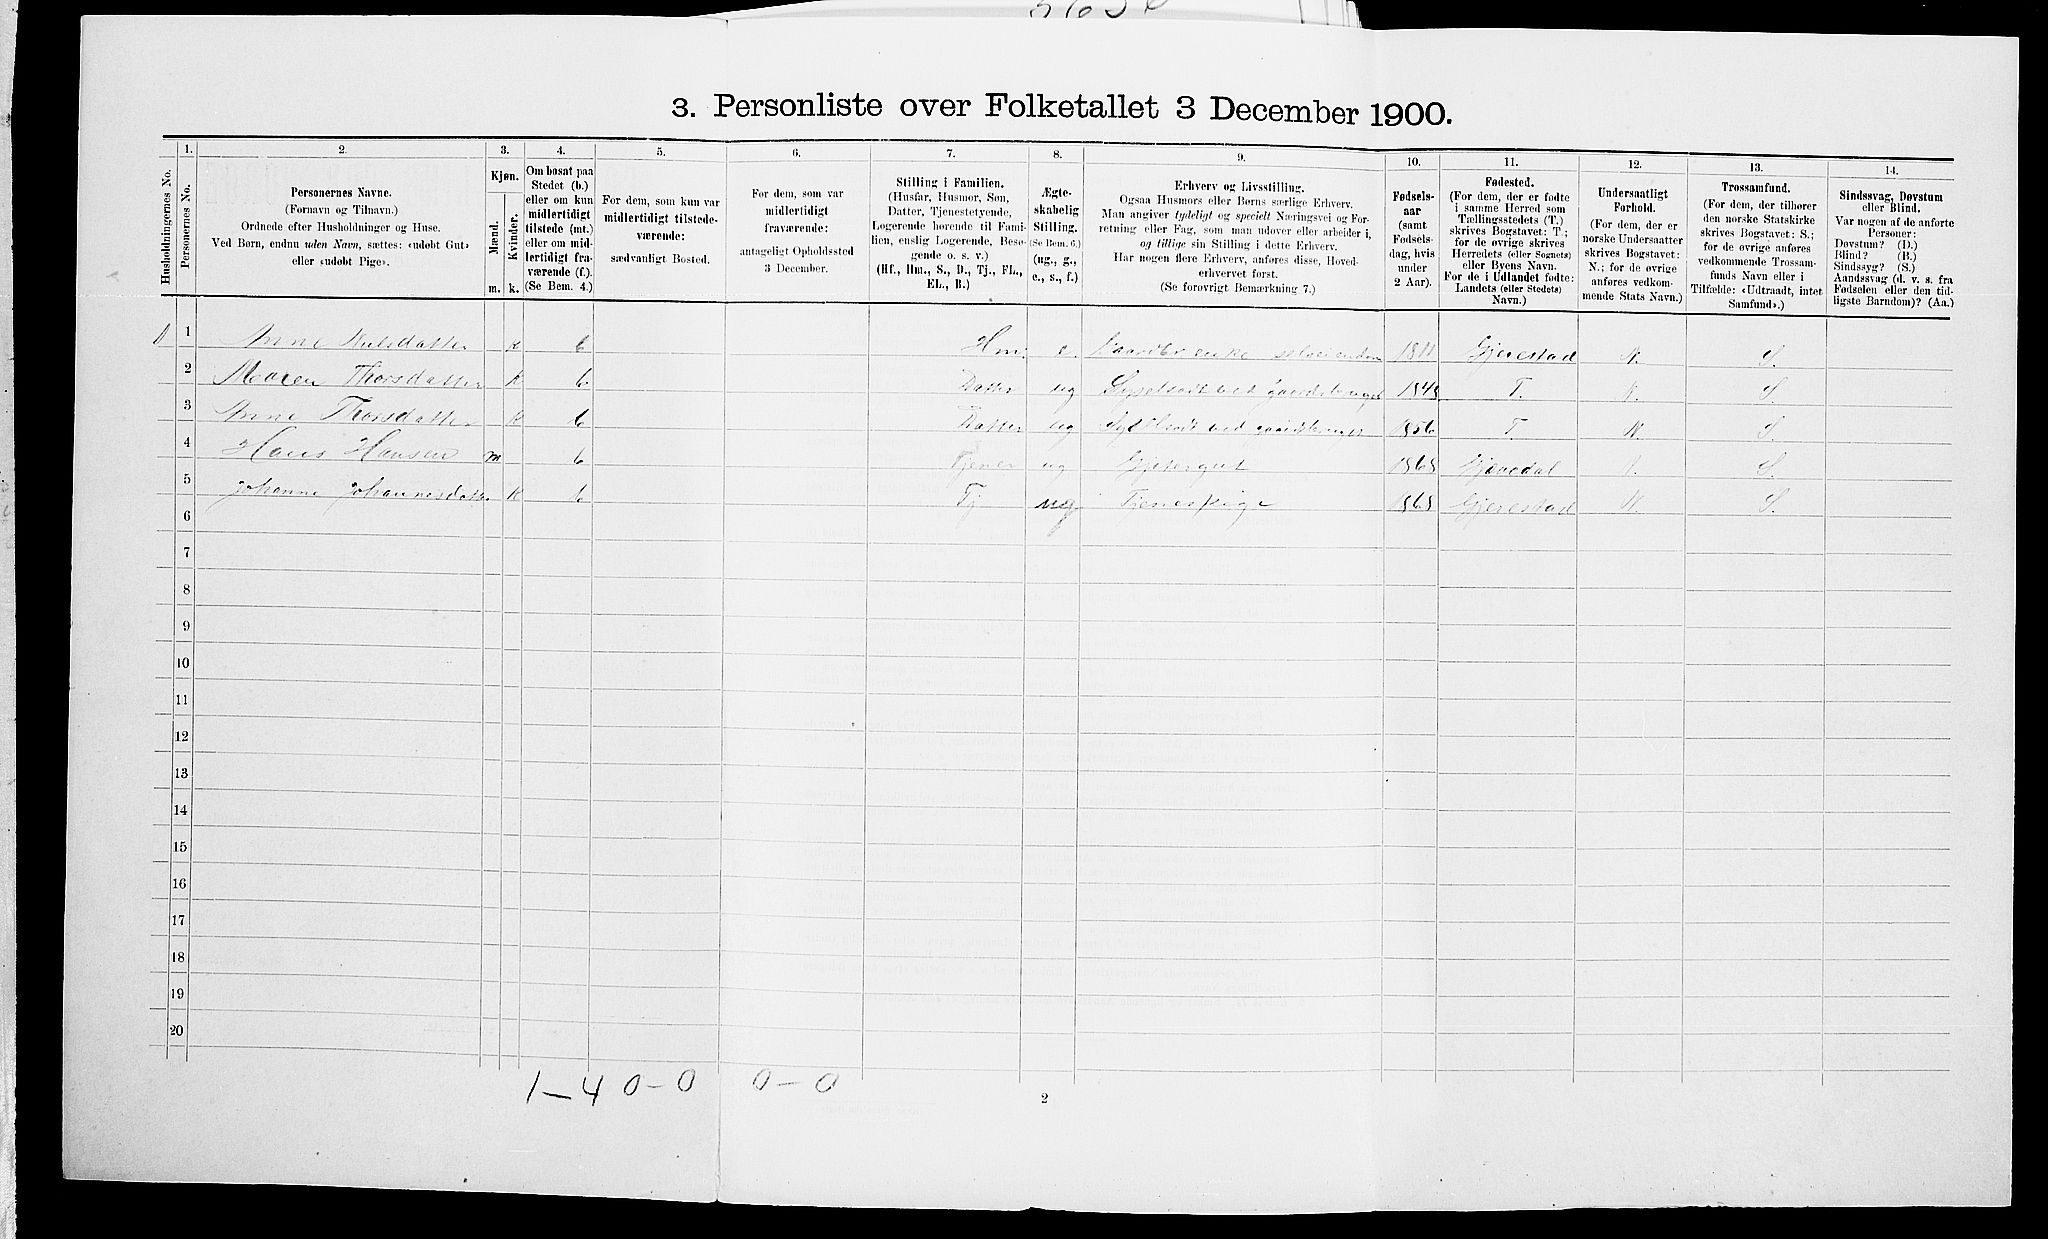 3. Personliste over Folketallet 3 December 1900.
1. 2. 3. 4. 5. 6. 7. 8. 9. 10. 11. 12. 13. 14.
Husholdningernes No.
Personernes No.
Personernes Navne.
(Fornavn og Tilnavn.)
Ordnede efter Husholdninger og Huse.
Ved Børn, endnu uden Navn, sættes: «udøbt Gut»
eller «udøbt Pige».
Kjøn.
Mænd.
Kvinder.
m. k.
Om bosat paa
Stedet (b.)
eller om kun
midlertidigt
tilstede (mt.)
eller om mid-
lertidigt fra-
værende (f.).
(Se Bem. 4.)
For dem, som kun var
midlertidigt tilstede-
værende:
sædvanligt Bosted.
For dem, som var
midlertidigt
fraværende:
antageligt Opholdssted
3 December.
Stilling i Familien.
(Husfar, Husmor, Søn,
Datter, Tjenestetyende,
Logerende hørende til Fami-
lien, enslig Logerende, Besø-
gende o. s. v.)
(Hf., Hm., S., D., Tj., FL.,
EL., B.)
Ægte-
skabelig
Stilling.
(Se Bem. 6.)
(ug., g.,
e., s., f.)
Erhverv og Livsstilling.
Ogsaa Husmors eller Børns særlige Erhverv.
Man angiver tydeligt og specielt Næringsvei og For-
retning eller Fag, som man udøver eller arbeider i,
og tillige sin Stilling i dette Erhverv.
Har nogen flere Erhverv, anføres disse, Hoved-
erhvervet først.
(Se forøvrigt Bemærkning 7.)
Fødsels-
aar
(samt
Fødsels-
dag, hvis
under
2 Aar).
Fødested.
(For dem, der er fødte
i samme Herred som
Tællingsstedets (T.)
skrives Bogstavet: T.;
for de øvrige skrives
Herredets (eller Sognets)
eller Byens Navn.
For de i Udlandet fødte:
Landets (eller Stedets)
Navn.)
Undersaatligt
Forhold.
(For dem, der er
norske Undersaatter
skrives Bogstavet:
N.; for de øvrige
anføres vedkom-
mende Stats Navn.)
Trossamfund.
(For dem, der tilhører
den norske Statskirke
skrives Bogstavet: S.;
for de øvrige anføres
vedkommende Trossam-
funds Navn eller i
Tilfælde: «Udtraadt, intet
Samfund».)
Sindssvag, Døvstum
eller Blind.
Var nogen af de anførte
Personer:
Døvstum? (D.)
Blind? (B.)
Sindssyg? (S.)
Aandssvag (d. v. s. fra
Fødselen eller den tid-
ligste Barndom)? (Aa.)
1 Anne Nielsdatter k b Hm. e. Gaardbr enke selveiendom 1811 Gjerestad N. S.
2 Maren Thorsdatter k b Datter ug Sysselsadt ved gaardsbruget 1848 T. N. S.
3 Anne Thorsdatter k b Datter ug ved gaardsbruget 1856 T. N. S.
4 Hans Hansen m b Tjener ug Gjetergut 1868 Gjøvedal N. S.
5 Johanne Johannesdatter k b Tj ug Tjenespige 1868 Gjerestad N. S.
6
7
8
9
10
11
12
13
14
15
16
17
18
19
20
1-4 0-0 0-0
2